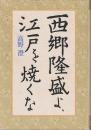 西郷隆盛よ、
江戸を焼くな
高野澄